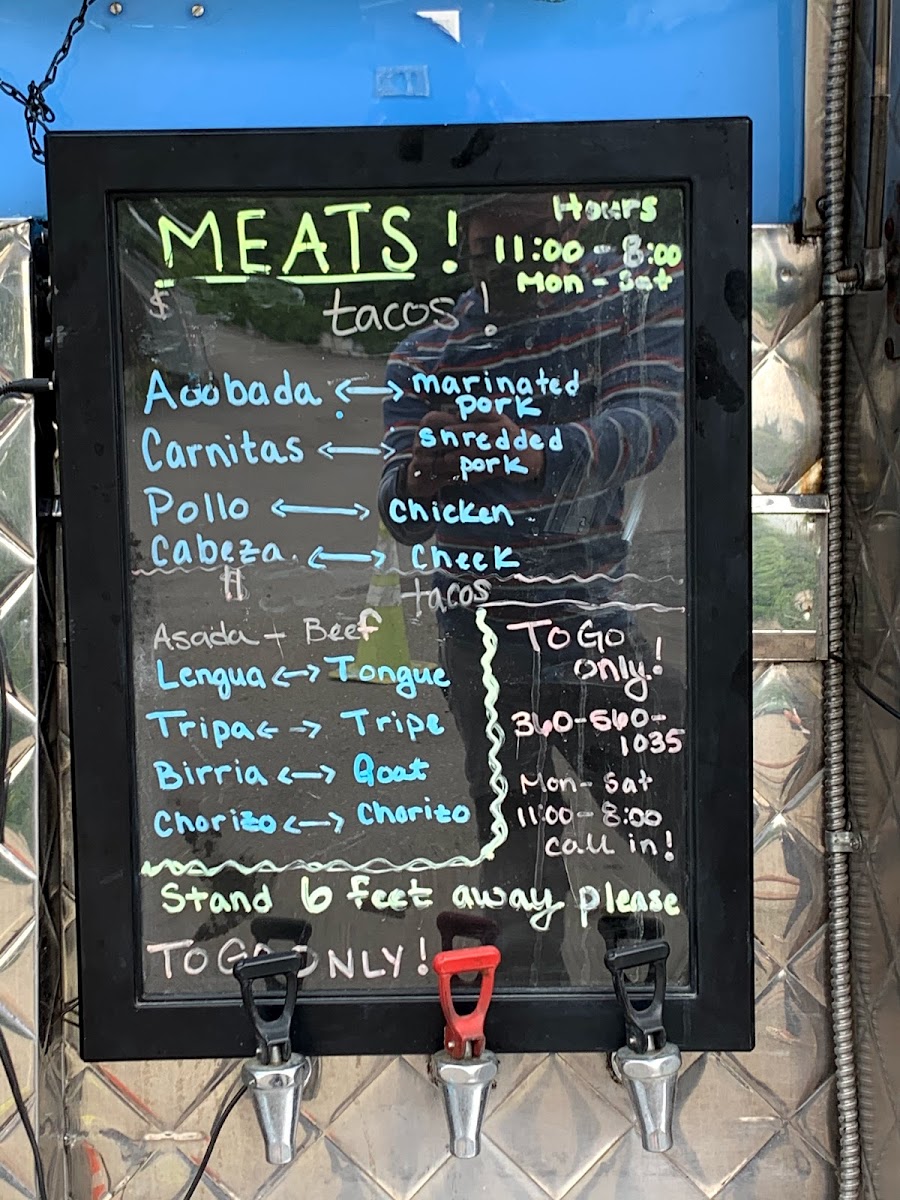 MEATS!
Hours
11:00 - 8:00
Mon - Sat
$
tacos!
Adobada ↔ marinated
pork
Carnitas ↔ shredded
pork
Pollo ↔ Chicken
Cabeza ↔ Cheek
tacos
Asada - Beef
Lengua ↔ Tongue
Tripa ↔ Tripe
Birria ↔ Goat
Chorizo ↔ Chorizo
To Go
only!
360-560-
1035
Mon- Sat
11:00-8:00
call in!
Stand 6 feet away please
TO GO ONLY!